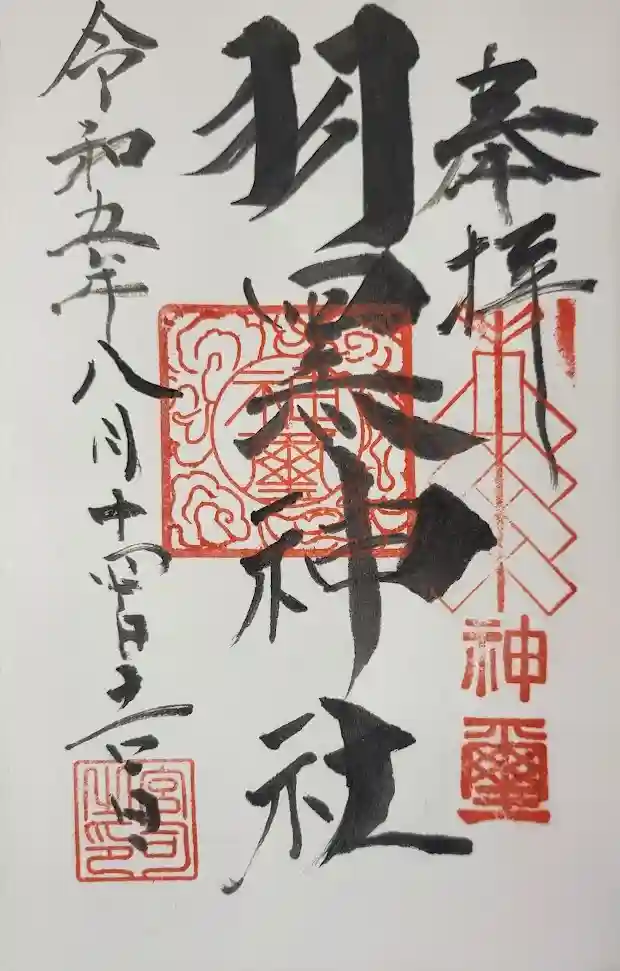 奉拝
神璽
羽黒神社
神璽
令和五年八月十四
宮司之印